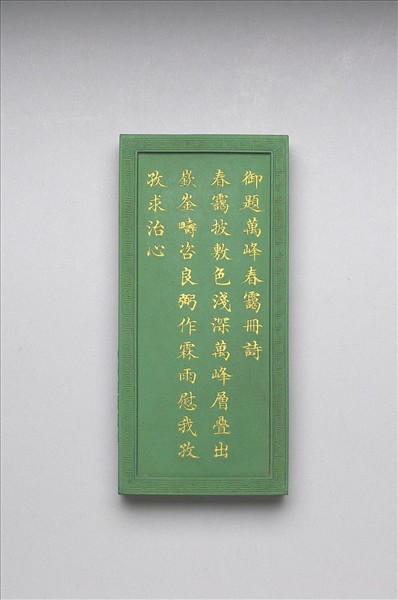 御題萬峰春靄冊詩
春靄披敷色淺深萬峰層疊出
嶔崟疇咨良弼作霖雨慰我孜
孜求治心